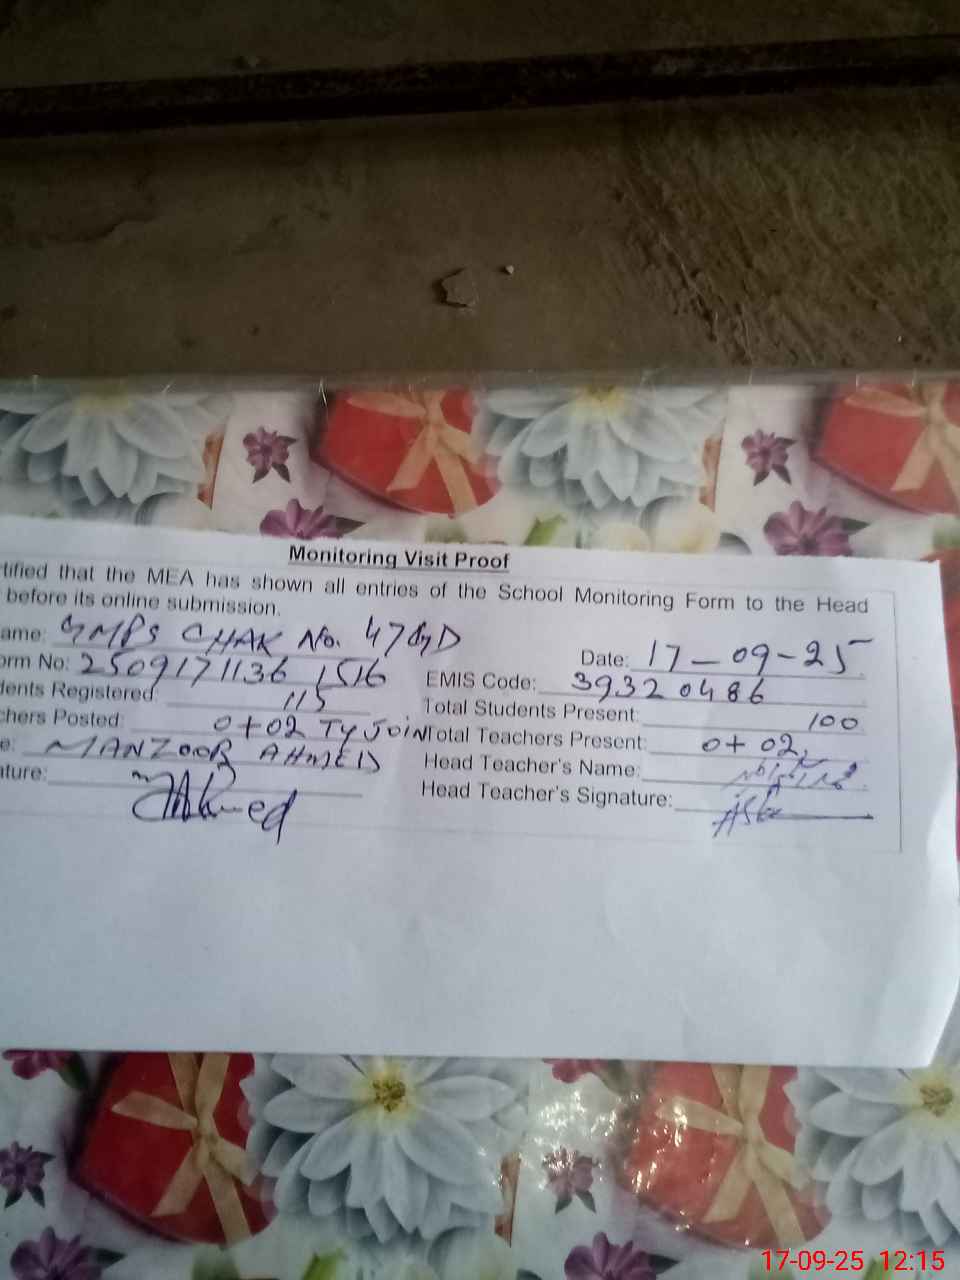 Monitoring Visit Proof
tified that the MEA has shown all entries of the School Monitoring Form to the Head
before its online submission.
ame: GMPS CHAK No. 47
Date: 17-09-25
orm No: 2509171136 1516
EMIS Code: 39320486
dents Registered: 115
Total Students Present: 100
chers Posted: 0+02 Ty JOIN
Total Teachers Present: 0+02
e: MANZOOR AHMED
Head Teacher's Name:
ature: Ahmed
Head Teacher's Signature:
17-09-25 12:15